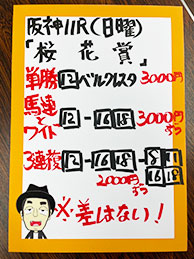 阪神11R(日曜)
「桜花賞」
単勝 12 ベルクレスタ 3000円
馬連 ワイド 12-16 18 3000円ずつ
3連複 12-16 18-
16 18
2000円ずつ
※差はない!